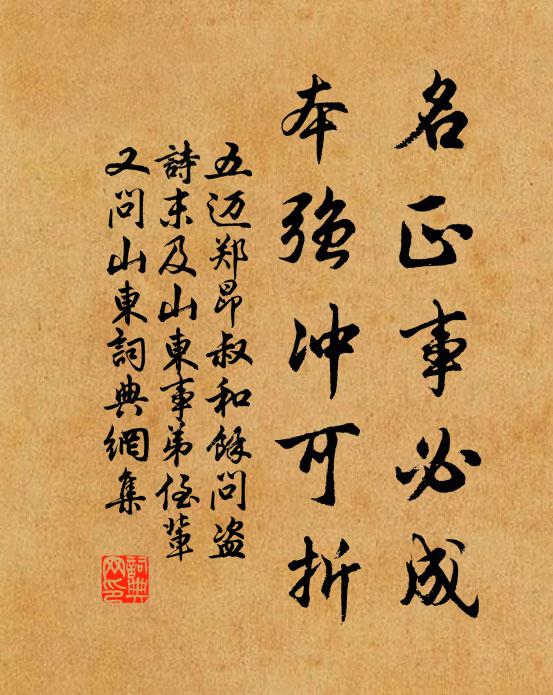 名正事必成
本強冲可折
五迈郑昂叔和餘问盗
詩末及山東事弟侄輩
又问山東詞典網集
詞典网印